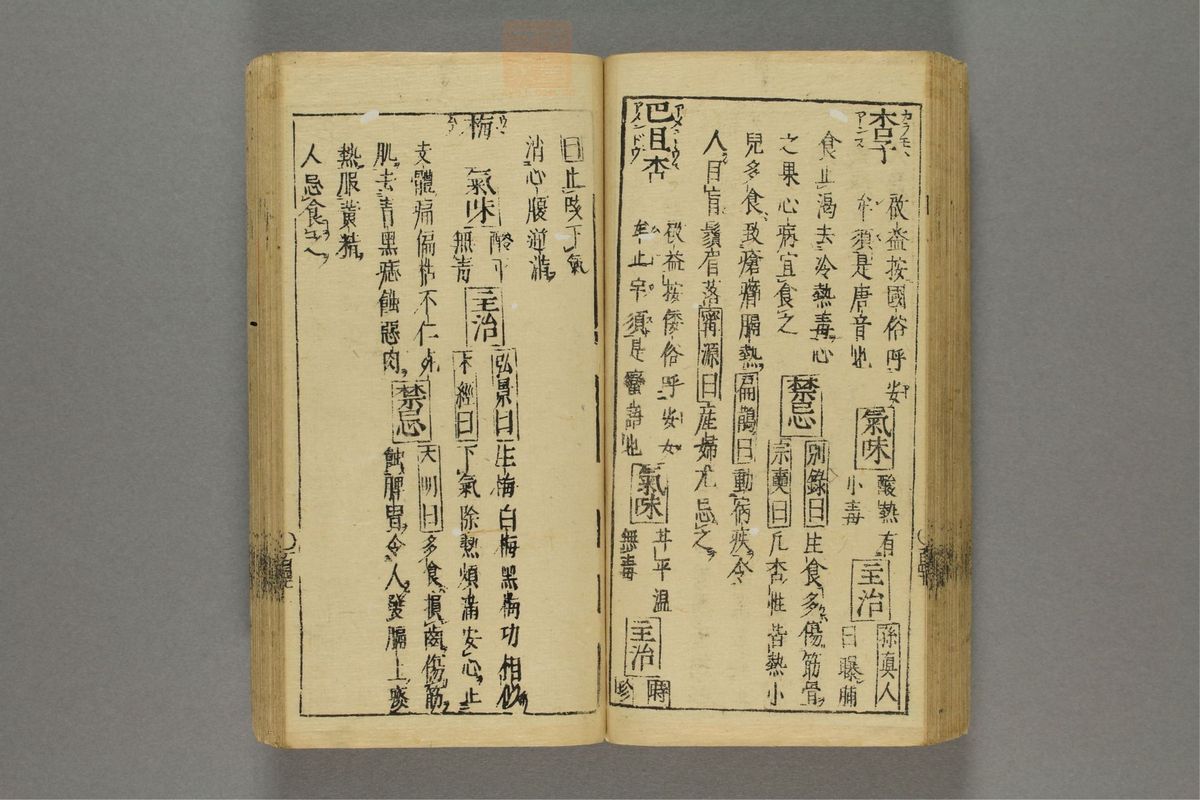 杏子 カラモヽ アンス
啟益按國俗呼安
牟須是唐音也
氣味 酸熱有
小毒
主治 孫真人
曰曝脯
食止渴去冷熱毒心
之果心病宜食之
禁忌 別錄曰生食多傷筋骨
宗奭曰凡杏性皆熱小
兒多食致瘡癰膈熱扁鵲曰動宿疾令
人目盲鬚眉落寗源曰産婦尤忌之
巴旦杏 アメンドウ
啟益按倭俗呼安女
牟止宇須是蠻語也
氣味 甘平温
無毒
主治 時
珍
曰止咳下氣
消心腹逆滿
梅
氣味 酸平
無毒
主治 弘景曰生梅白梅黑梅功相似
本經曰下氣除熱煩滿安心止
支體痛偏枯不仁死
肌去青黑痣蝕惡肉
禁忌 大明曰多食損齒傷筋
蝕脾胃令人發膈上痰
熱服黄精
人忌食之